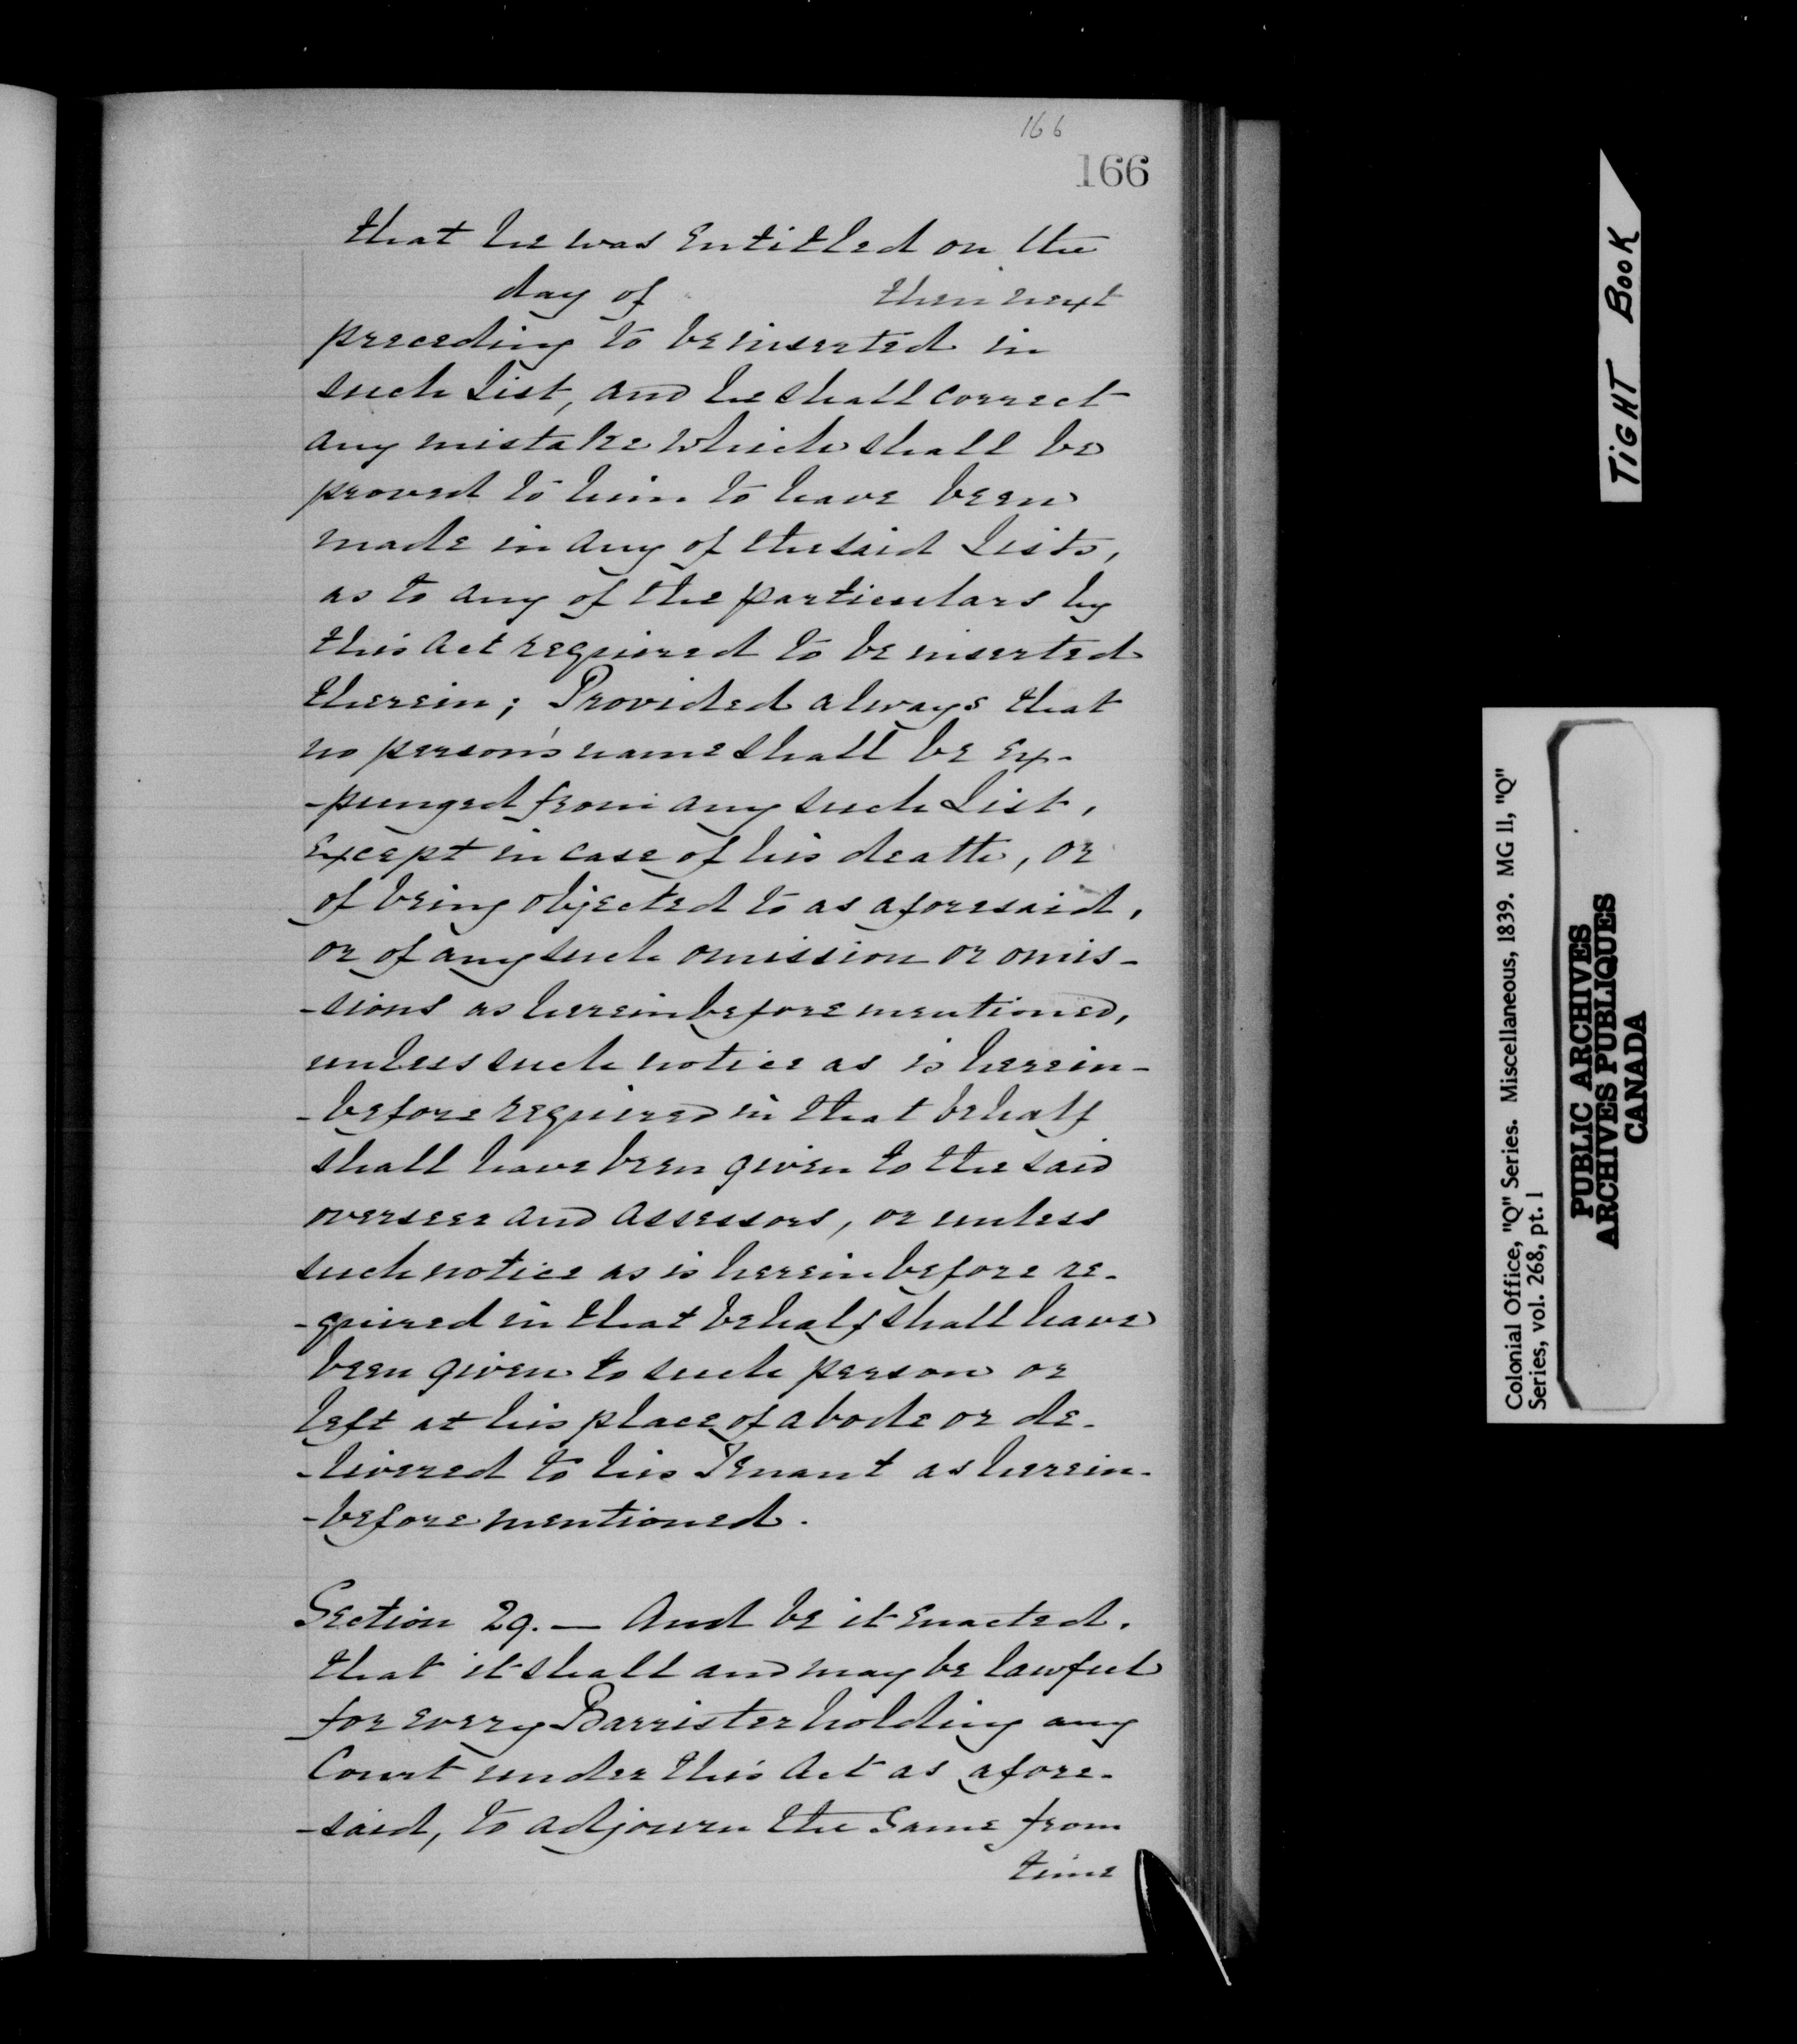 166
166
that he was entitled on the
day of then next
preceding to be inserted in
such List, and he shall correct
any mistake which shall be
proved to him to have been
made in any of the said Lists,
as to any of the particulars by
this Act required to be inserted
therein; Provided always that
no person's name shall be ex-
-punged from any such List,
except in case of his death, or
of being objected to as aforesaid,
or of any such omission or omis-
-sions as hereinbefore mentioned,
unless such notice as is herein-
-before required in that behalf
shall have been given to the said
overseer and assessors, or unless
such notice as is hereinbefore re-
-quired in that behalf shall have
been given to such person or
left at his place of abode or de-
-livered to his Tenant as herein-
-before mentioned.
Section 29. — And be it enacted,
that it shall and may be lawful
for every Barrister holding any
Court under this Act as afore-
-said, to adjourn the same from
time
TIGHT BOOK
Colonial Office, "Q" Series. Miscellaneous, 1839. MG 11, "Q"
Series, vol. 268, pt. 1
PUBLIC ARCHIVES
ARCHIVES PUBLIQUES
CANADA